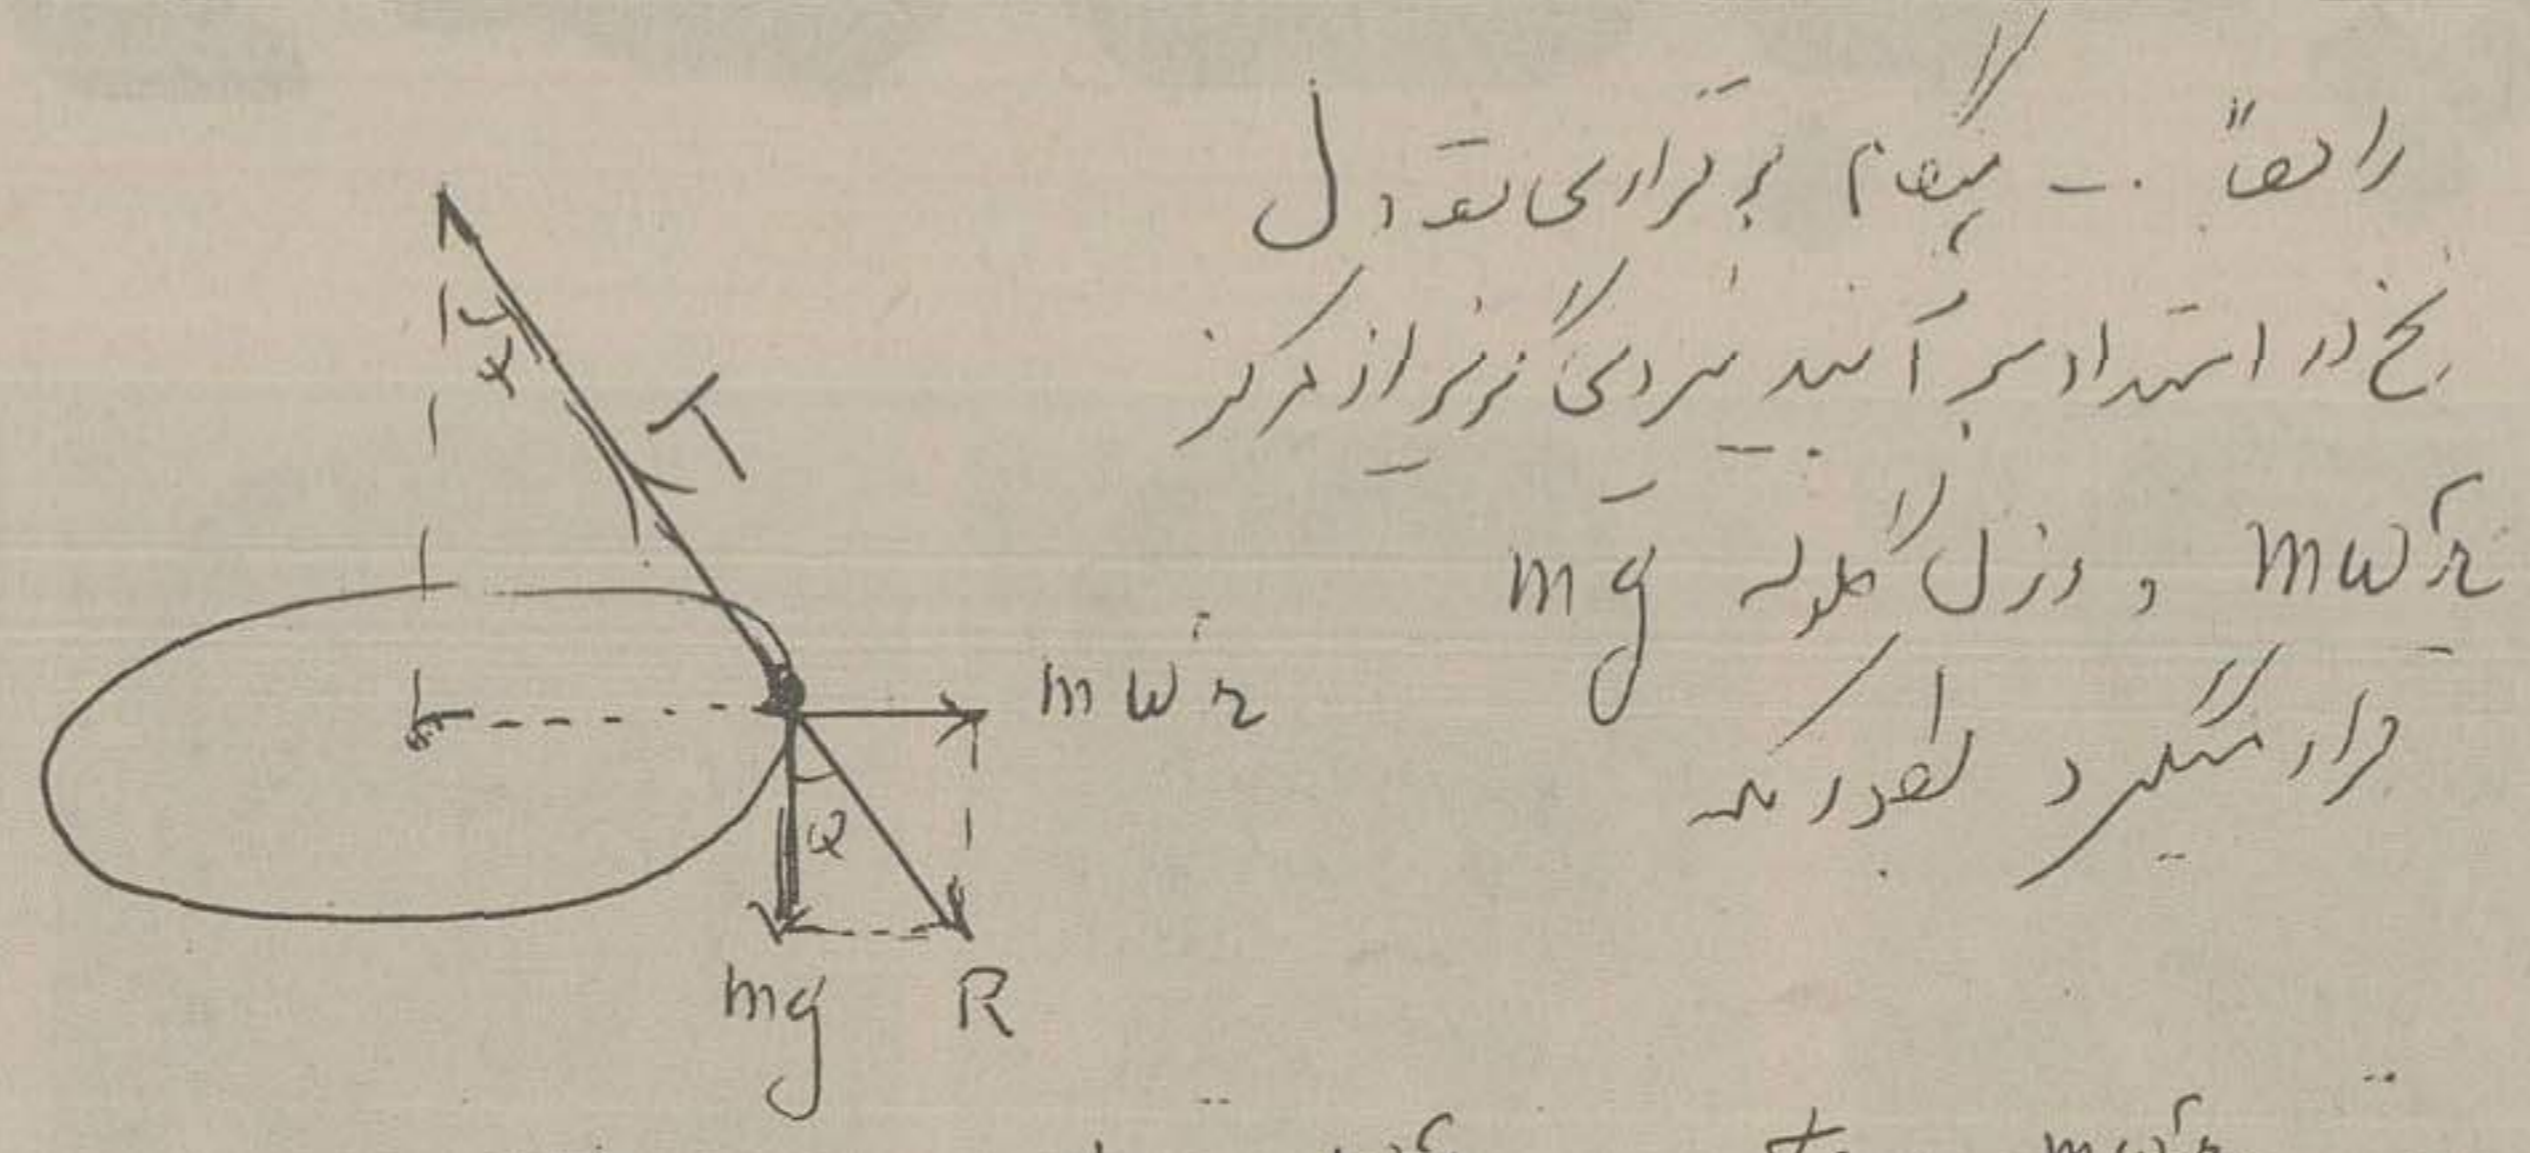 رابعاً - هنگام برقراری تعادل
نخ در امتداد برآیند نیروی گریز از مرکز
mω²r و وزن گلوله mg
قرار میگیرد بطوریکه
α
T
mω²r
α
mg R
mω²r